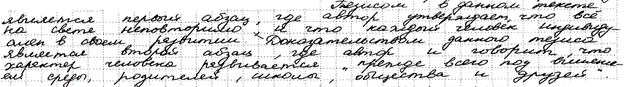 Тезисом в данном тексте
является первый абзац, где автор утверждает, что всё
на свете неповторимо и что каждый человек индивиду
ален в своём развитии. Доказательством данного тезиса
является второй абзац, где автор и говорит, что
характер человека развивается „прежде всего под влияние
ем среды, родителей, школы, общества и друзей".